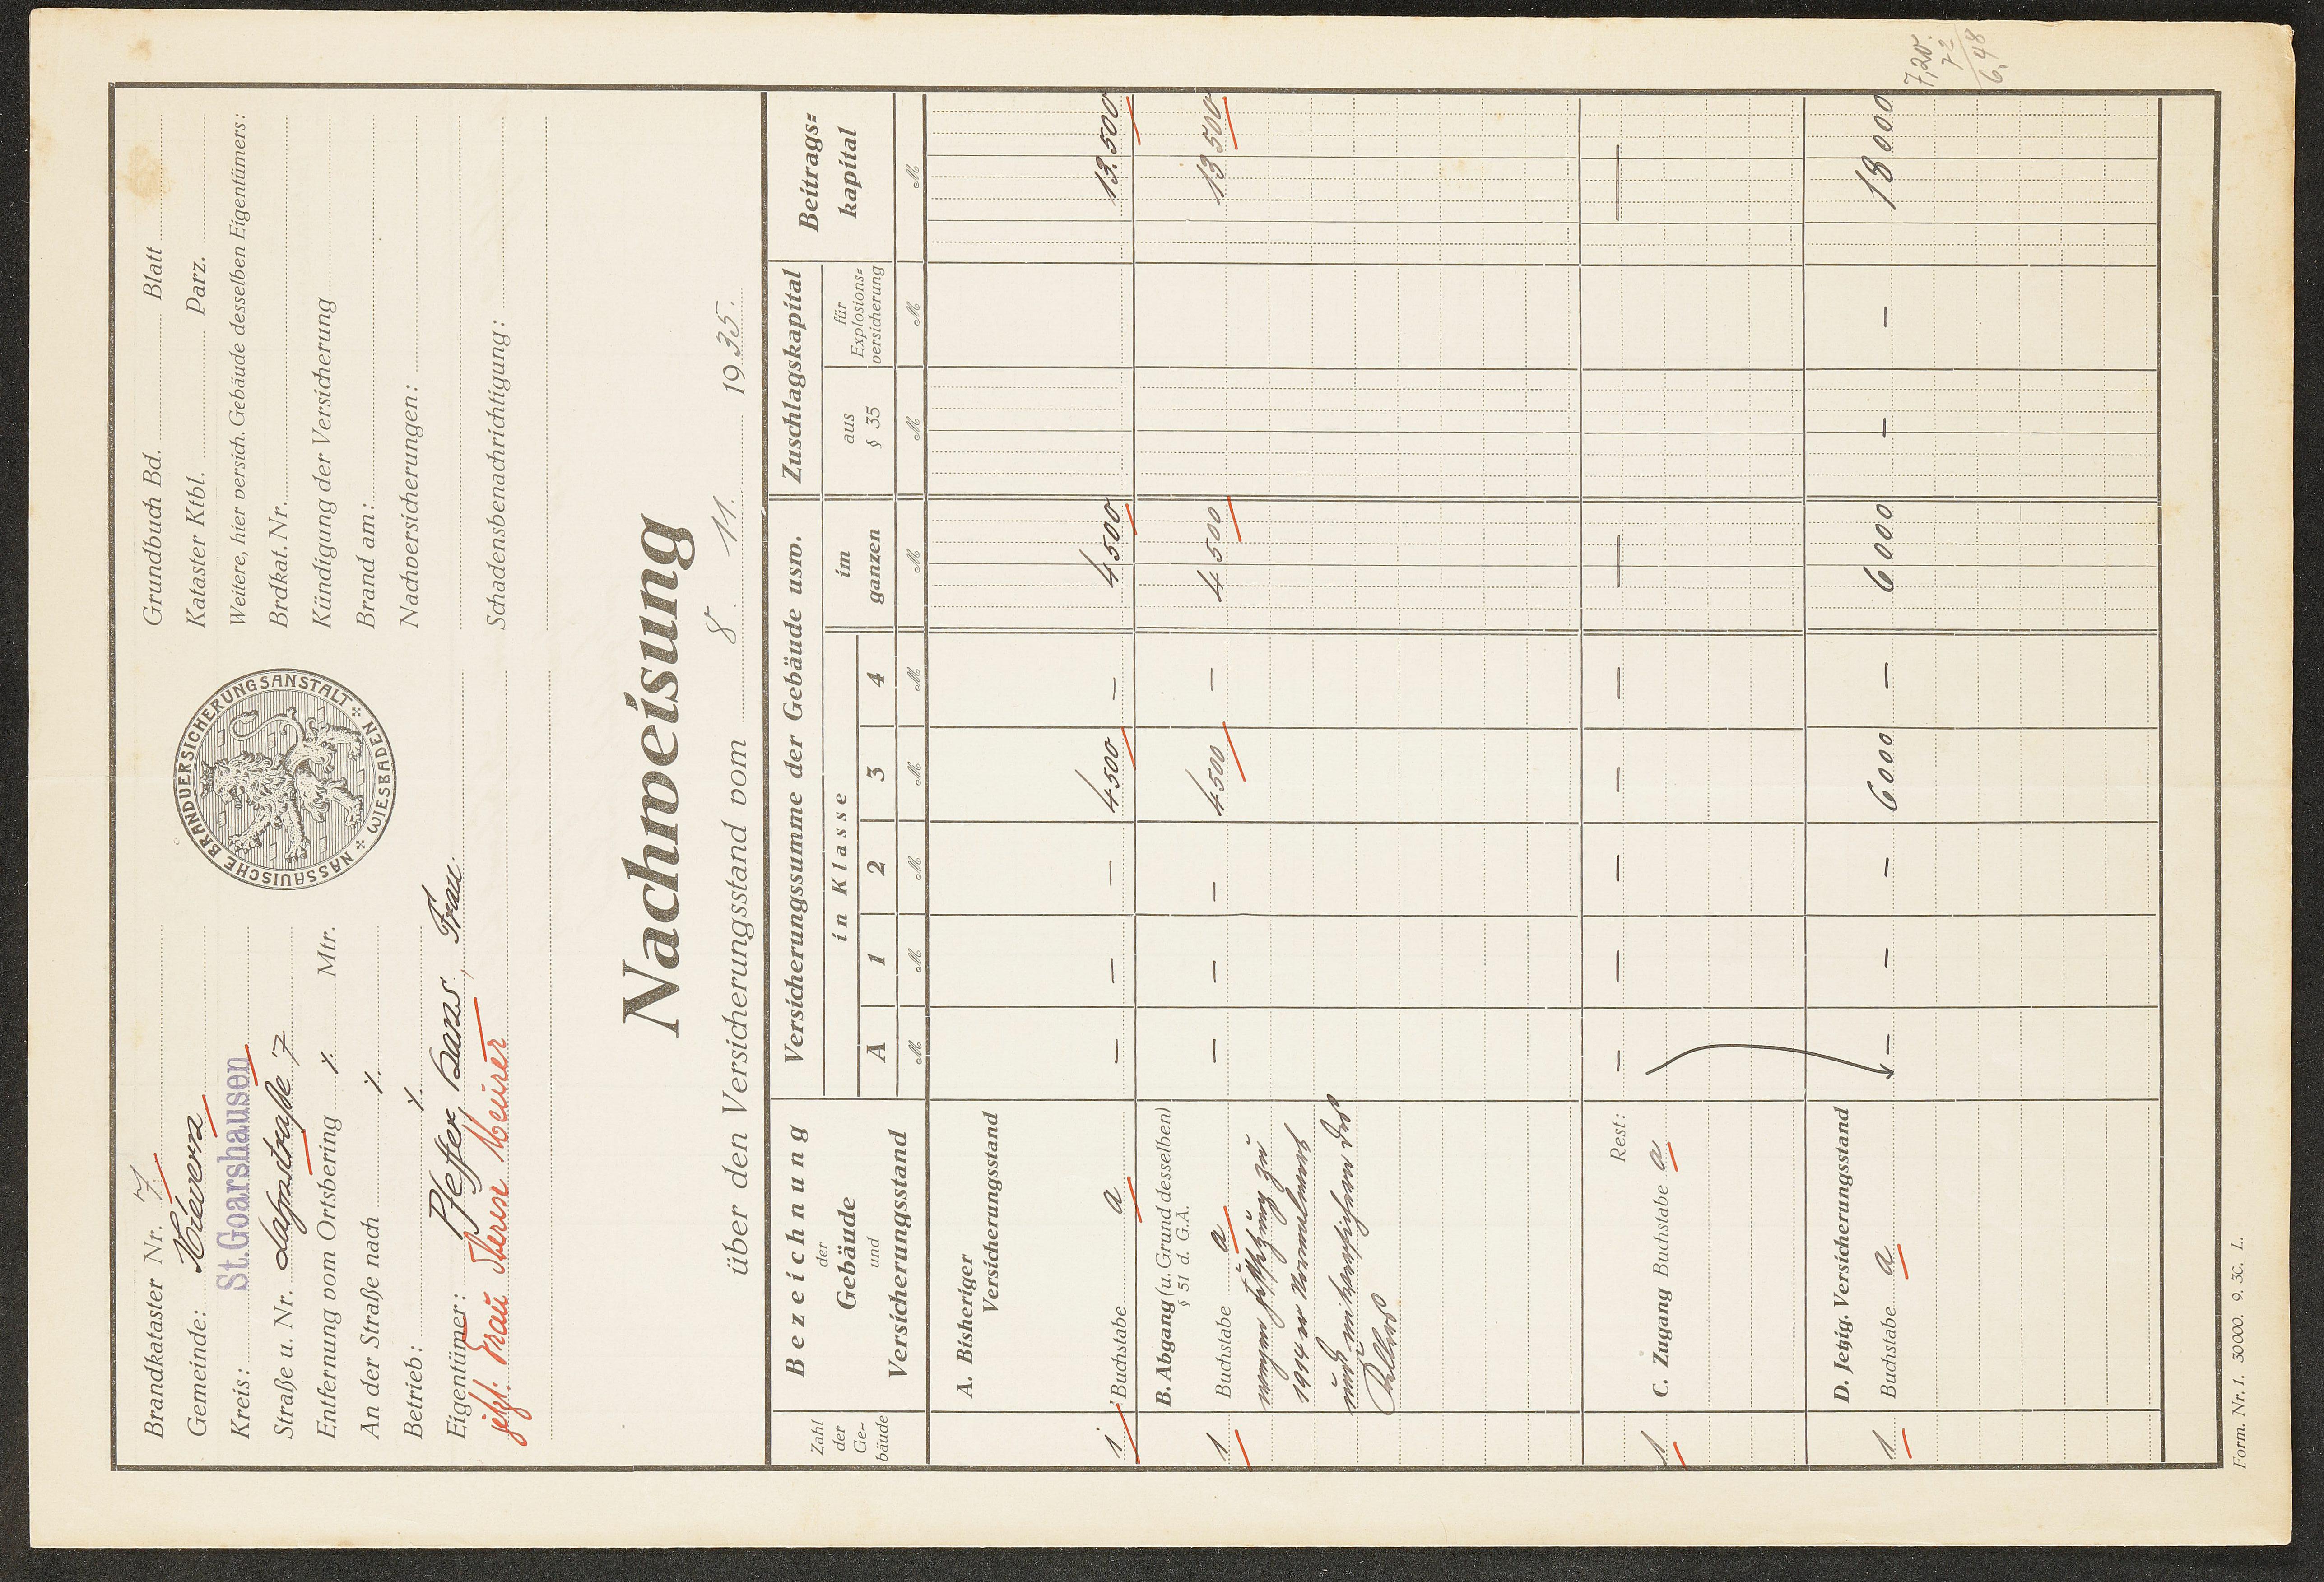 Brandkataster Nr. 7.
Gemeinde: Kievern
Kreis: St. Goarshausen
Straße u. Nr. Lahnstraße 7
Entfernung vom Ortsbering ٪ Mtr.
An der Straße nach ٪
Betrieb: ٪
Eigentümer: Pfeffer Hans, Frau.
jetzt: Frau Therese Meurer
NASSAUISCHE BRANDVERSICHERUNGSANSTALT
WIESBADEN
Grundbuch Bd. Blatt
Kataster Ktbl. Parz.
Weitere, hier versich. Gebäude desselben Eigentümers:
Brdkat. Nr.
Kündigung der Versicherung
Brand am:
Nachversicherungen:
Schadensbenachrichtigung:
Nachweisung
über den Versicherungsstand vom 8. 11. 1935.
Zahl der Ge-bäude
Bezeichnung der Gebäude und Versicherungsstand
Versicherungssumme der Gebäude usw.
in Klasse
A 1 2 3 4
im ganzen
Zuschlagskapital
aus § 35
für Explosions-versicherung
Beitrags-kapital
M M M M M M M M M
A. Bisheriger
Versicherungsstand
1 Buchstabe a — — — 4500 — 4500 13.500
B. Abgang (u. Grund desselben)
§ 51 d. G.A.
1 Buchstabe a — — — 4500 — 4500 13500
wegen zu
1914 er
Rest: — — — — — — —
1 C. Zugang Buchstabe a
D. Jetzig. Versicherungsstand
1 Buchstabe a — — — 6000 — 6000 — — 18000
7,20.
72
6,48
Form. Nr. 1. 30000. 9. 30. L.